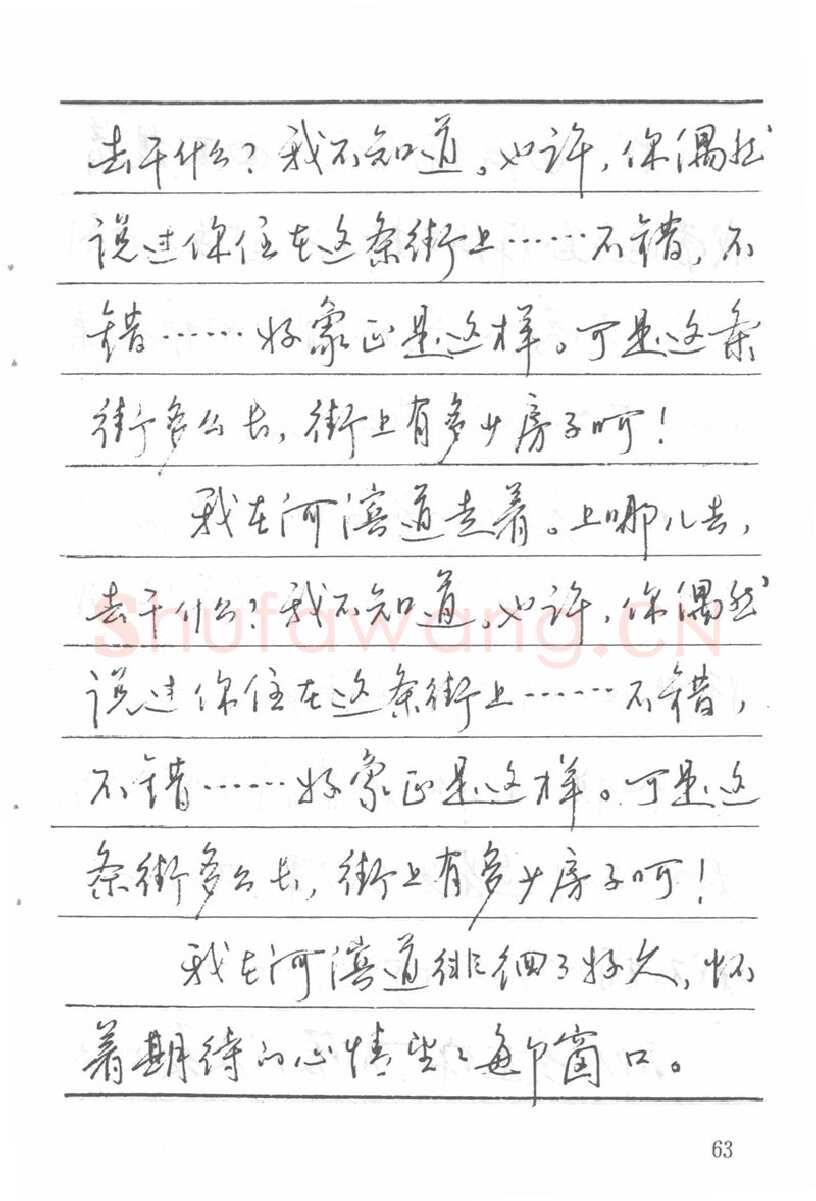 去干什么？我不知道。也许，你偶然
说过你住在这条街上……不错，不
错……好象正是这样。可是这条
街多么长，街上有多少房子呵！
我在河滨道走着。上哪儿去，
去干什么？我不知道。也许，你偶然
说过你住在这条街上……不错，
不错……好象正是这样。可是这
条街多么长，街上有多少房子呵！
我在河滨道徘徊了好久，怀
着期待的心情望望每个窗口。
Shufawang.CN
63